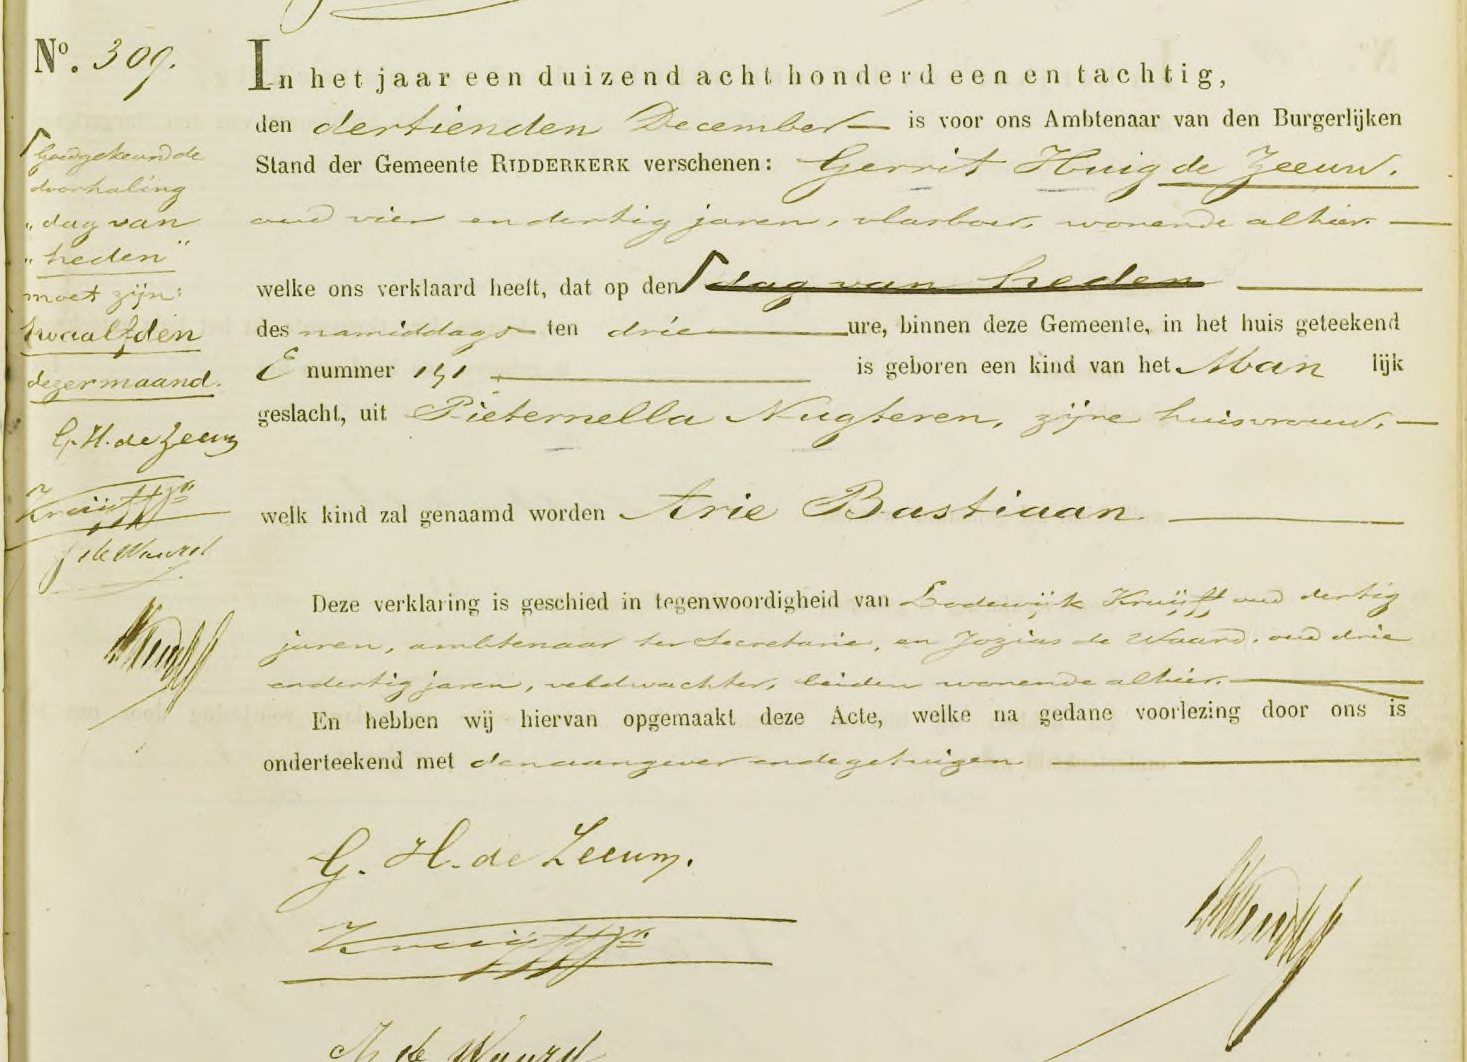 Nº. 309.
In het jaar een duizend acht honderd een en tachtig,
den dertienden December is voor ons Ambtenaar van den Burgerlijken
Stand der Gemeente RIDDERKERK verschenen: Gerrit Huig de Zeeuw,
oud vier en dertig jaren, vlasboer, wonende alhier.
welke ons verklaard heeft, dat op den dag van heden
des namiddags ten drie ure, binnen deze Gemeente, in het huis geteekend
E nummer 151 is geboren een kind van het Man lijk
geslacht, uit Pieternella Nugteren, zijne huisvrouw,
welk kind zal genaamd worden Arie Bastiaan
Deze verklaring is geschied in tegenwoordigheid van Lodewijk Kruijff oud dertig
jaren, ambtenaar ter Secretarie, en Jozias de Waard, oud drie
en dertig jaren, veldwachter, beiden wonende alhier.
En hebben wij hiervan opgemaakt deze Acte, welke na gedane voorlezing door ons is
onderteekend met den aangever en de getuigen
Goedgekeurd de
doorhaling
„dag van
„heden”
moet zijn:
twaalfden
dezer maand.
G. H. de Zeeuw
Kruijff
de Waard
G. H. de Zeeuw.
Kruijff
de Waard